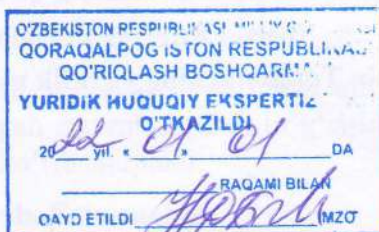 O'ZBEKISTON RESPUBLIKASI MILLIY G
QORAQALPOG'ISTON RESPUBLIKA
QO'RIQLASH BOSHQARMA
YURIDIK HUQUQIY EKSPERTIZ
O'TKAZILDI
2022 yil. « 01 » 01 DA
RAQAMI BILAN
QAYD ETILDI IMZO